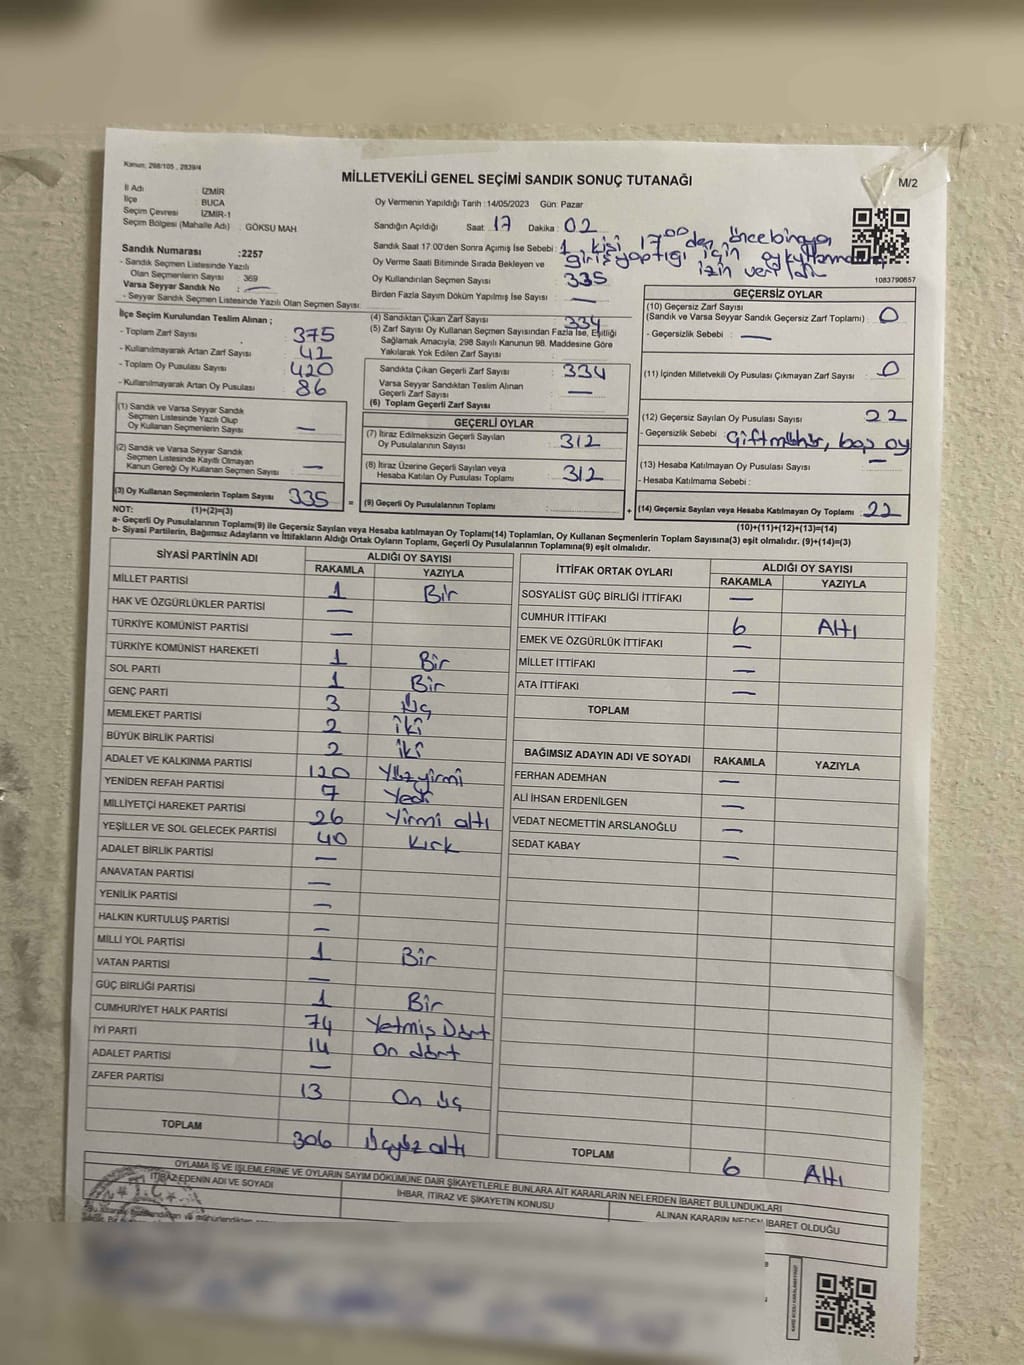 Kanun: 298/105 , 2839/4
MİLLETVEKİLİ GENEL SEÇİMİ SANDIK SONUÇ TUTANAĞI
M/2
İl Adı : İZMİR
İlçe : BUCA
Seçim Çevresi : İZMİR-1
Seçim Bölgesi (Mahalle Adı) : GÖKSU MAH
Oy Vermenin Yapıldığı Tarih :14/05/2023 Gün: Pazar
Sandığın Açıldığı Saat : 17 Dakika : 02
Sandık Saat 17:00'den Sonra Açılmış İse Sebebi : 1 kişi 17:00 den önce binaya
giriş yaptığı için oy kullanma
izin verildi
Oy Verme Saati Bitiminde Sırada Bekleyen ve
Oy Kullandırılan Seçmen Sayısı : 335
Birden Fazla Sayım Döküm Yapılmış İse Sayısı : —
1083790857
Sandık Numarası :2257
- Sandık Seçmen Listesinde Yazılı
Olan Seçmenlerin Sayısı : 369
Varsa Seyyar Sandık No : —
- Seyyar Sandık Seçmen Listesinde Yazılı Olan Seçmen Sayısı:
İlçe Seçim Kurulundan Teslim Alınan ;
- Toplam Zarf Sayısı : 375
- Kullanılmayarak Artan Zarf Sayısı : 41
- Toplam Oy Pusulası Sayısı : 420
- Kullanılmayarak Artan Oy Pusulası : 86
(1) Sandık ve Varsa Seyyar Sandık
Seçmen Listesinde Yazılı Olup
Oy Kullanan Seçmenlerin Sayısı : —
(2) Sandık ve Varsa Seyyar Sandık
Seçmen Listesinde Kayıtlı Olmayan
Kanun Gereği Oy Kullanan Seçmen Sayısı : —
(3) Oy Kullanan Seçmenlerin Toplam Sayısı : 335 =
(4) Sandıktan Çıkan Zarf Sayısı : 334
(5) Zarf Sayısı Oy Kullanan Seçmen Sayısından Fazla İse, Eşitliği
Sağlamak Amacıyla; 298 Sayılı Kanunun 98. Maddesine Göre
Yakılarak Yok Edilen Zarf Sayısı :
Sandıkta Çıkan Geçerli Zarf Sayısı : 334
Varsa Seyyar Sandıktan Teslim Alınan
Geçerli Zarf Sayısı : —
(6) Toplam Geçerli Zarf Sayısı
GEÇERLİ OYLAR
(7) İtiraz Edilmeksizin Geçerli Sayılan
Oy Pusulalarının Sayısı : 312
(8) İtiraz Üzerine Geçerli Sayılan veya
Hesaba Katılan Oy Pusulası Toplamı : 312
(9) Geçerli Oy Pusulalarının Toplamı : +
GEÇERSİZ OYLAR
(10) Geçersiz Zarf Sayısı
(Sandık ve Varsa Seyyar Sandık Geçersiz Zarf Toplamı) : 0
- Geçersizlik Sebebi : —
(11) İçinden Milletvekili Oy Pusulası Çıkmayan Zarf Sayısı : 0
(12) Geçersiz Sayılan Oy Pusulası Sayısı : 22
- Geçersizlik Sebebi : Çift mühür, boş oy
(13) Hesaba Katılmayan Oy Pusulası Sayısı : —
- Hesaba Katılmama Sebebi :
(14) Geçersiz Sayılan veya Hesaba Katılmayan Oy Toplamı : 22
NOT: (1)+(2)=(3)
(10)+(11)+(12)+(13)=(14)
a- Geçerli Oy Pusulalarının Toplamı(9) ile Geçersiz Sayılan veya Hesaba katılmayan Oy Toplamı(14) Toplamları, Oy Kullanan Seçmenlerin Toplam Sayısına(3) eşit olmalıdır. (9)+(14)=(3)
b- Siyasi Partilerin, Bağımsız Adayların ve İttifakların Aldığı Ortak Oyların Toplamı, Geçerli Oy Pusulalarının Toplamına(9) eşit olmalıdır.
SİYASİ PARTİNİN ADI ALDIĞI OY SAYISI
RAKAMLA YAZIYLA
MİLLET PARTİSİ 1 Bir
HAK VE ÖZGÜRLÜKLER PARTİSİ —
TÜRKİYE KOMÜNİST PARTİSİ —
TÜRKİYE KOMÜNİST HAREKETİ 1 Bir
SOL PARTİ 1 Bir
GENÇ PARTİ 3 Üç
MEMLEKET PARTİSİ 2 iki
BÜYÜK BİRLİK PARTİSİ 2 iki
ADALET VE KALKINMA PARTİSİ 120 Yüz yirmi
YENİDEN REFAH PARTİSİ 7 Yedi
MİLLİYETÇİ HAREKET PARTİSİ 26 Yirmi altı
YEŞİLLER VE SOL GELECEK PARTİSİ 40 Kırk
ADALET BİRLİK PARTİSİ —
ANAVATAN PARTİSİ —
YENİLİK PARTİSİ —
HALKIN KURTULUŞ PARTİSİ —
MİLLİ YOL PARTİSİ 1 Bir
VATAN PARTİSİ —
GÜÇ BİRLİĞİ PARTİSİ 1 Bir
CUMHURİYET HALK PARTİSİ 74 Yetmiş Dört
İYİ PARTİ 14 On dört
ADALET PARTİSİ —
ZAFER PARTİSİ 13 On üç
TOPLAM 306 Üçyüz altı
İTTİFAK ORTAK OYLARI ALDIĞI OY SAYISI
RAKAMLA YAZIYLA
SOSYALİST GÜÇ BİRLİĞİ İTTİFAKI —
CUMHUR İTTİFAKI 6 Altı
EMEK VE ÖZGÜRLÜK İTTİFAKI —
MİLLET İTTİFAKI —
ATA İTTİFAKI —
TOPLAM
BAĞIMSIZ ADAYIN ADI VE SOYADI RAKAMLA YAZIYLA
FERHAN ADEMHAN —
ALİ İHSAN ERDENİLGEN —
VEDAT NECMETTİN ARSLANOĞLU —
SEDAT KABAY —
TOPLAM 6 Altı
OYLAMA İŞ VE İŞLEMLERİNE VE OYLARIN SAYIM DÖKÜMÜNE DAİR ŞİKAYETLERLE BUNLARA AİT KARARLARIN NELERDEN İBARET BULUNDUKLARI
İTİRAZ EDENİN ADI VE SOYADI İHBAR, İTİRAZ VE ŞİKAYETİN KONUSU ALINAN KARARIN NEDEN İBARET OLDUĞU
T.C.